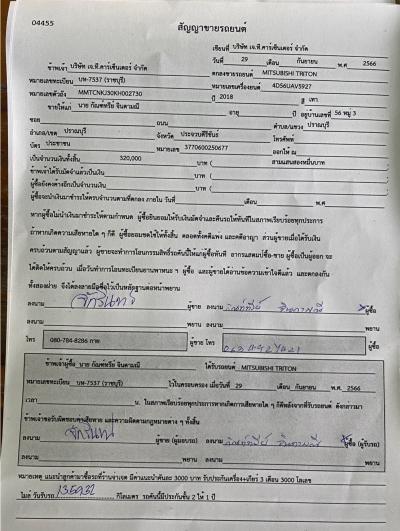 04455
สัญญาขายรถยนต์
เขียนที่ บริษัท เจ.ที.คาร์เซ็นเตอร์ จำกัด
วันที่ 29 เดือน กันยายน พ.ศ 2566
ข้าพเจ้า บริษัท เจ.ที.คาร์เซ็นเตอร์ จำกัด ตกลงขายรถยนต์ MITSUBISHI TRITON
หมายเลขทะเบียน บห-7537 (ราชบุรี) หมายเลขเครื่องยนต์ 4D56UAV5927
หมายเลขตัวถัง MMTCNKJ30KH002730 ปี 2018 สี เทา
ขายให้แก่ นาย กัณฑ์หรีย์ จินดามณี อายุ ปี อยู่บ้านเลขที่ 56 หมู่ 3
ซอย ถนน ตำบล/แขวง ปราณบุรี
อำเภอ/เขต ปราณบุรี จังหวัด ประจวบคีรีขันธ์ โทรศัพท์
บัตร ประชาชน หมายเลข 3770600250677 ออกให้ ณ
เป็นจำนวนเงินทั้งสิ้น 320,000 บาท ( สามแสนสองหมื่นบาท
ข้าพเจ้าได้รับมัดจำแล้วเป็นเงิน บาท (
ผู้ซื้อยังคงค้างอีกเป็นจำนวนเงิน บาท (
ผู้ซื้อจะนำเงินมาชำระให้ครบจำนวนตามที่ตกลง ภายใน วันที่ เดือน พ.ศ
หากผู้ซื้อไม่นำเงินมาชำระให้ตามกำหนด ผู้ซื้อยินยอมให้ริบเงินมัดจำและคืนรถให้ทันทีในสภาพเรียบร้อยทุกประการ
ถ้าหากเกิดความเสียหายใด ๆ ก็ดี ผู้ซื้อยอมชดใช้ให้ทั้งสิ้น ตลอดทั้งคดีแพ่ง และคดีอาญา ส่วนผู้ขายเมื่อได้รับเงิน
ครบถ้วนตามสัญญาแล้ว ผู้ขายจะทำการโอนกรรมสิทธิ์รถคันนี้ให้แก่ผู้ซื้อทันที อากรแสตมป์ซื้อ-ขาย ผู้ซื้อเป็นผู้ออก จะ
ได้ติดให้ครบถ้วน เมื่อวันทำการโอนทะเบียนยานพาหนะ ฯ ผู้ซื้อ และผู้ขายได้อ่านข้อความเข้าใจดีแล้ว และตกลงกัน
ทั้งสองฝ่าย จึงได้ลงลายมือชื่อไว้เป็นหลักฐานต่อหน้าพยาน
ลงนาม ผู้ขาย ลงนาม ผู้ซื้อ
ลงนาม พยาน ลงนาม พยาน
โทร 080-784-8286 ภาพ ผู้ขาย โทร ผู้ซื้อ
ข้าพเจ้าผู้ซื้อ นาย กัณฑ์หรีย์ จินดามณี ได้รับรถยนต์ MITSUBISHI TRITON
หมายเลขทะเบียน บห-7537 (ราชบุรี) ไว้ในครอบครอง เมื่อวันที่ 29 เดือน กันยายน พ.ศ. 2566
เวลา น. ในสภาพเรียบร้อยทุกประการหากเกิดการเสียหายใด ๆ ก็ดีหลังจากที่รับรถยนต์ ดังกล่าวมา
ข้าพเจ้าขอรับผิดชอบคุณเสียหาย และความผิดตามกฎหมายต่าง ๆ ทั้งสิ้น
ลงนาม ผู้ขาย (ผู้มอบรถ) ลงนาม ผู้ซื้อ (ผู้รับรถ)
ลงนาม พยาน ลงนาม พยาน
หมายเหตุ แนะนำลูกค้ามาซื้อรถที่ร้านจ่ายเงิน มีค่าแนะนำคันละ 3000 บาท รับประกันเครื่อง+เกียร์ 3 เดือน 3000 โลเลข
ไมล์ วันรับรถ 135932 กิโลเมตร รถคันนี้มีประกันชั้น 2 ให้ 1 ปี